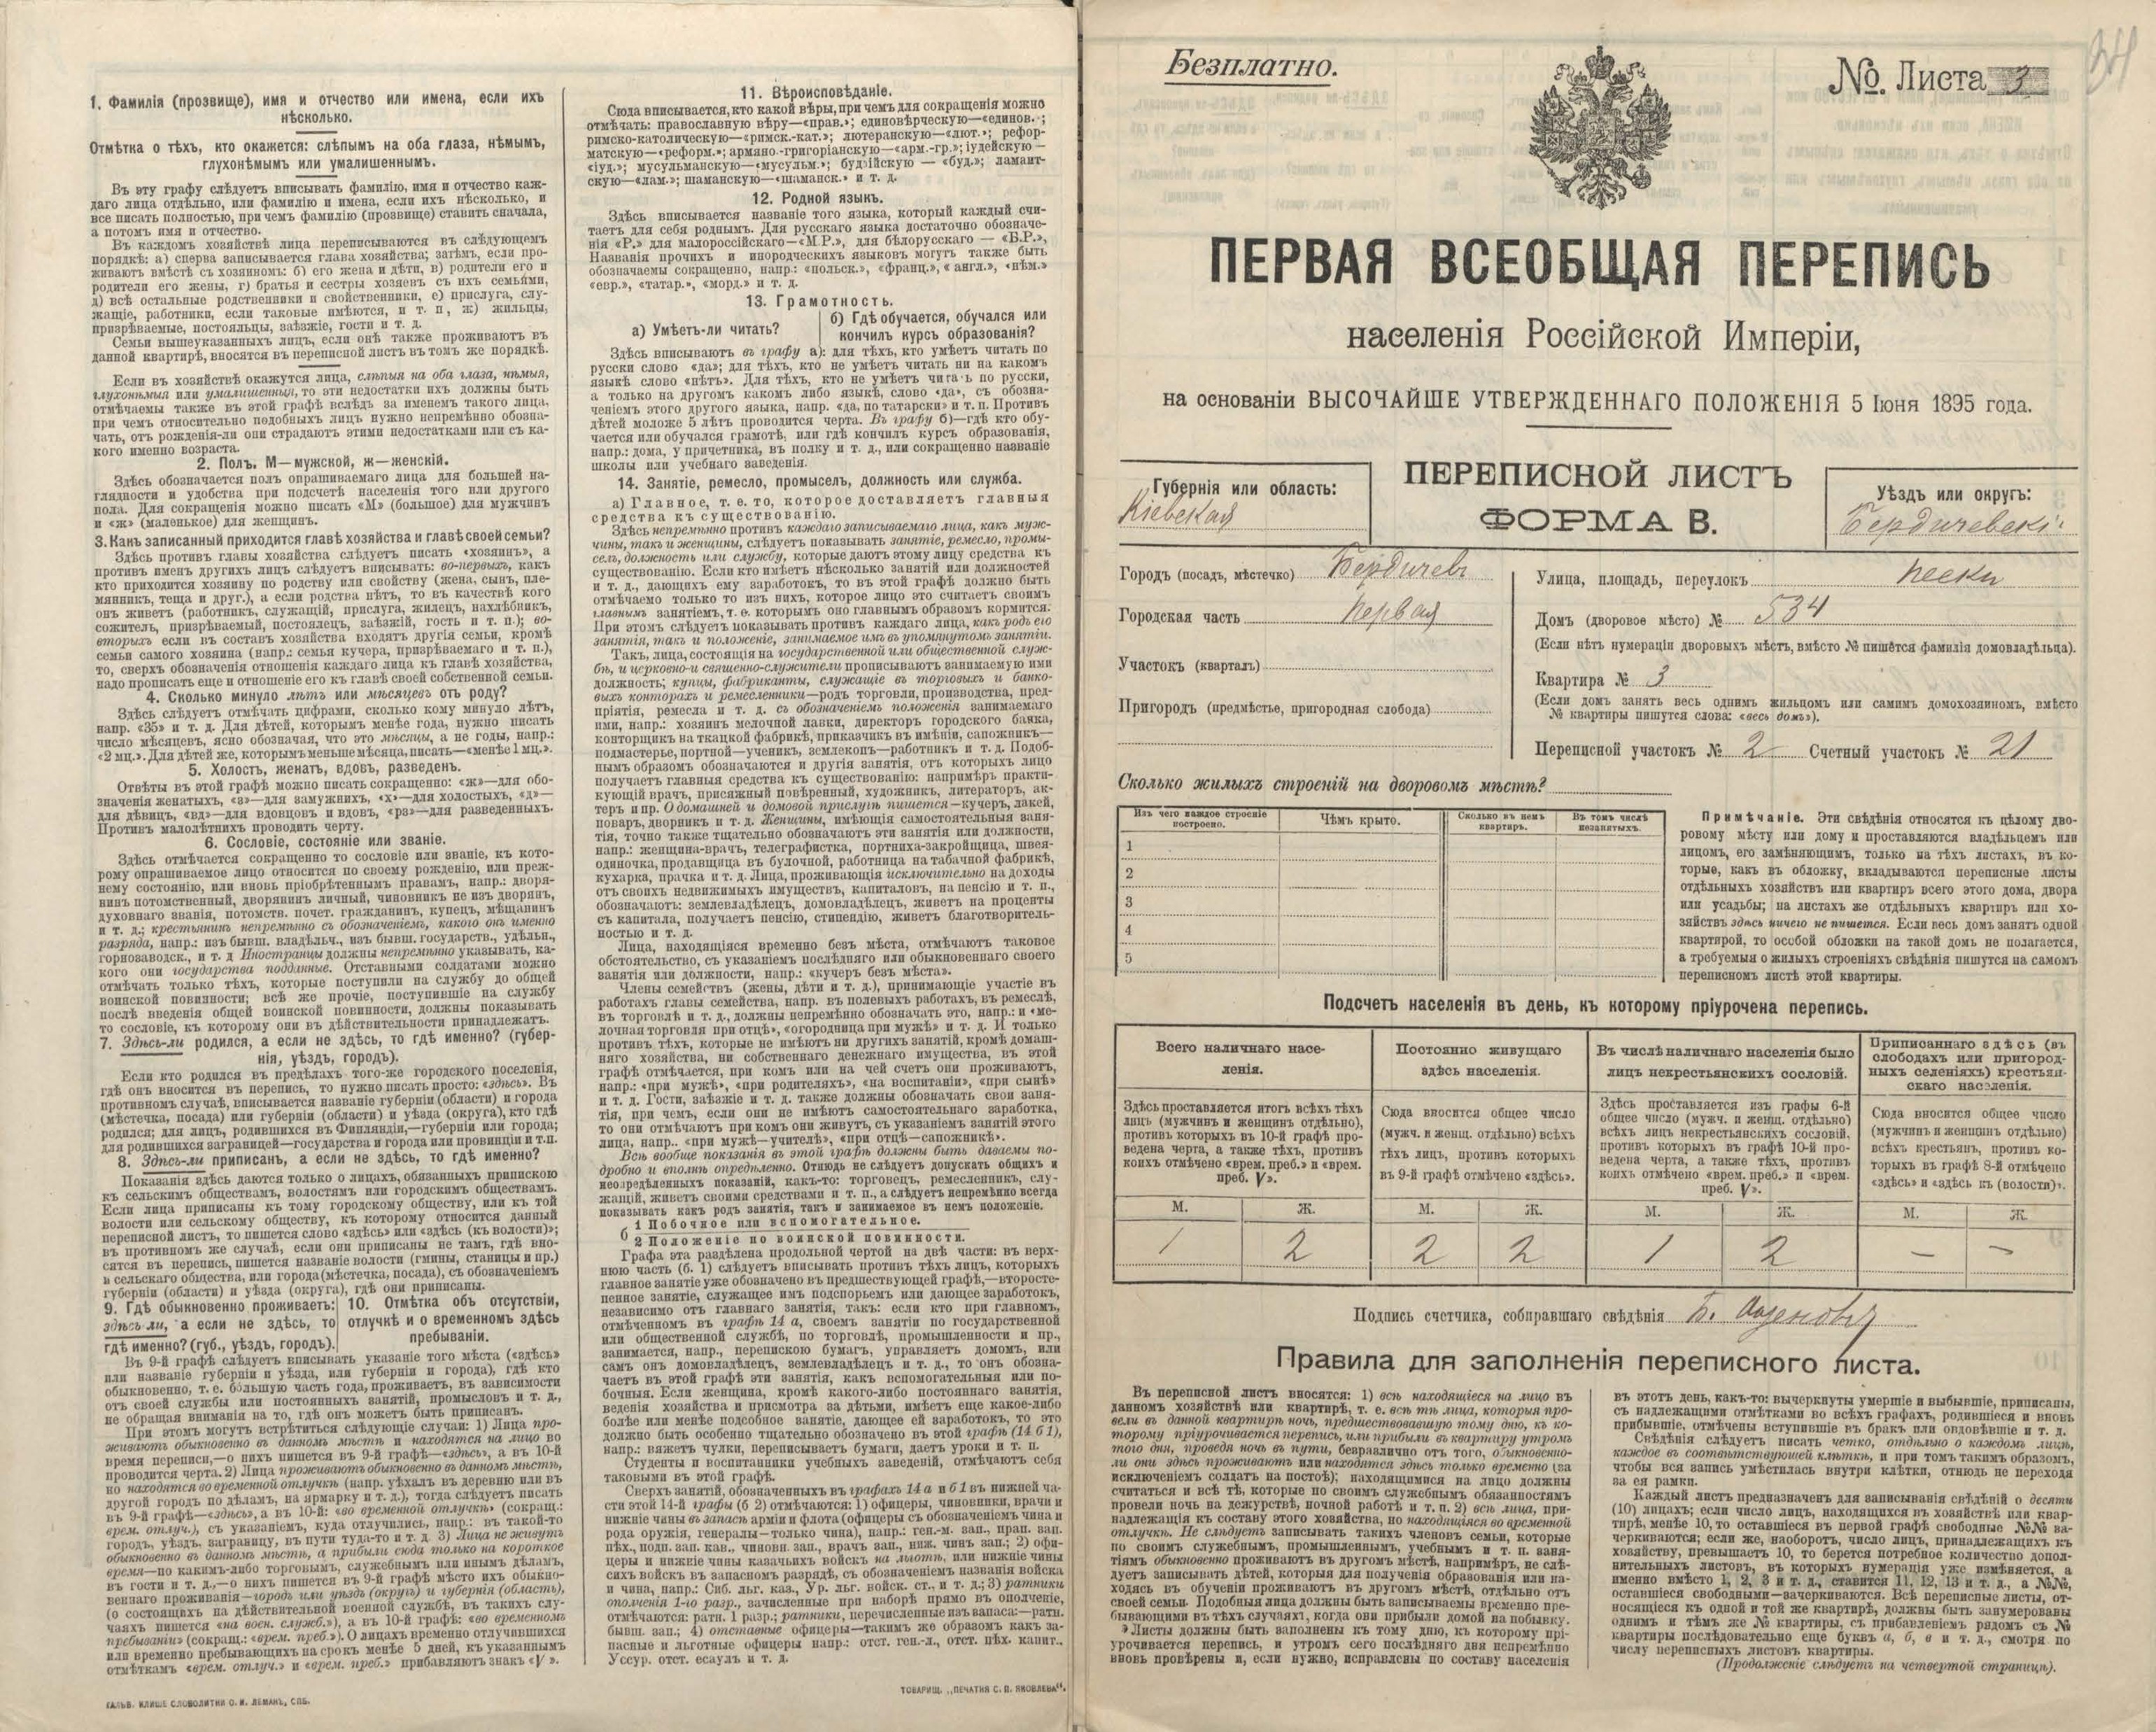 1. Фамилія (прозвище), имя и отчество или имена, если ихъ
нѣсколько.
Отмѣтка о тѣхъ, кто окажется: слѣпымъ на оба глаза, нѣмымъ,
глухонѣмымъ или умалишеннымъ.
Въ эту графу слѣдуетъ вписывать фамилію, имя и отчество каж-
даго лица отдѣльно, или фамилію и имена, если ихъ нѣсколько, и
все писать полностью, при чемъ фамилію (прозвище) ставить сначала,
а потомъ имя и отчество.
Въ каждомъ хозяйствѣ лица переписываются въ слѣдующемъ
порядкѣ: а) сперва записывается глава хозяйства; затѣмъ, если про-
живаютъ вмѣстѣ съ хозяиномъ: б) его жена и дѣти, в) родители его и
родители его жены, г) братья и сестры хозяевъ съ ихъ семьями,
д) всѣ остальные родственники и свойственники, е) прислуга, слу-
жащіе, работники, если таковые имѣются, и т. п, ж) жильцы,
призрѣваемые, постояльцы, заѣзжіе, гости и т. д.
Семьи вышеуказанныхъ лицъ, если онѣ также проживаютъ въ
данной квартирѣ, вносятся въ переписной листъ въ томъ же порядкѣ.
Если въ хозяйствѣ окажутся лица, слѣпыя на оба глаза, нѣмыя,
глухонѣмыя или умалишенныя, то эти недостатки ихъ должны быть
отмѣчаемы также въ этой графѣ вслѣдъ за именемъ такого лица,
при чемъ относительно подобныхъ лицъ нужно непремѣнно обозна-
чать, отъ рожденія-ли они страдаютъ этими недостатками или съ ка-
кого именно возраста.
2. Полъ. М—мужской, ж—женскій.
Здѣсь обозначается полъ опрашиваемаго лица для большей на-
глядности и удобства при подсчетѣ населенія того или другого
пола. Для сокращенія можно писать «М» (большое) для мужчинъ
и «ж» (маленькое) для женщинъ.
3. Какъ записанный приходится главѣ хозяйства и главѣ своей семьи?
Здѣсь противъ главы хозяйства слѣдуетъ писать «хозяинъ», а
противъ именъ другихъ лицъ слѣдуетъ вписывать: во-первыхъ, какъ
кто приходится хозяину по родству или свойству (жена, сынъ, пле-
мянникъ, теща и друг.), а если родства нѣтъ, то въ качествѣ кого
онъ живетъ (работникъ, служащій, прислуга, жилецъ, нахлѣбникъ,
сожитель, призрѣваемый, постоялецъ, заѣзжій, гость и т. п.); во-
вторыхъ если въ составъ хозяйства входятъ другія семьи, кромѣ
семьи самого хозяина (напр.: семья кучера, призрѣваемаго и т. п.),
то, сверхъ обозначенія отношенія каждаго лица къ главѣ хозяйства,
надо прописать еще и отношеніе его къ главѣ своей собственной семьи.
4. Сколько минуло лѣтъ или мѣсяцевъ отъ роду?
Здѣсь слѣдуетъ отмѣчать цифрами, сколько кому минуло лѣтъ,
напр. «35» и т. д. Для дѣтей, которымъ менѣе года, нужно писать
число мѣсяцевъ, ясно обозначая, что это мѣсяцы, а не годы, напр.:
«2 мц.». Для дѣтей же, которымъ меньше мѣсяца, писать—«менѣе 1 мц.».
5. Холостъ, женатъ, вдовъ, разведенъ.
Отвѣты въ этой графѣ можно писать сокращенно: «ж»—для обо-
значенія женатыхъ, «з»—для замужнихъ, «х»—для холостыхъ, «д»—
для дѣвицъ, «вд»—для вдовцовъ и вдовъ, «рз»—для разведенныхъ.
Противъ малолѣтнихъ проводить черту.
6. Сословіе, состояніе или званіе.
Здѣсь отмѣчается сокращенно то сословіе или званіе, къ кото-
рому опрашиваемое лицо относится по своему рожденію, или преж-
нему состоянію, или вновь пріобрѣтеннымъ правамъ, напр.: дворя-
нинъ потомственный, дворянинъ личный, чиновникъ не изъ дворянъ,
духовнаго званія, потомств. почет. гражданинъ, купецъ, мѣщанинъ
и т. д.; крестьянинъ непремѣнно съ обозначеніемъ, какого онъ именно
разряда, напр.: изъ бывш. владѣльч., изъ бывш. государств., удѣльн.,
горнозаводск., и т. д Иностранцы должны непремѣнно указывать, ка-
кого они государства подданные. Отставными солдатами можно
отмѣчать только тѣхъ, которые поступили на службу до общей
воинской повинности; всѣ же прочіе, поступившіе на службу
послѣ введенія общей воинской повинности, должны показывать
то сословіе, къ которому они въ дѣйствительности принадлежатъ.
7. Здѣсь-ли родился, а если не здѣсь, то гдѣ именно? (губер-
нія, уѣздъ, городъ).
Если кто родился въ предѣлахъ того-же городского поселенія,
гдѣ онъ вносится въ перепись, то нужно писать просто: «здѣсь». Въ
противномъ случаѣ, вписывается названіе губерніи (области) и города
(мѣстечка, посада) или губерніи (области) и уѣзда (округа), кто гдѣ
родился; для лицъ, родившихся въ Финляндіи,—губерніи или города;
для родившихся заграницей—государства и города или провинціи и т.п.
8. Здѣсь-ли приписанъ, а если не здѣсь, то гдѣ именно?
Показанія здѣсь даются только о лицахъ, обязанныхъ припискою
къ сельскимъ обществамъ, волостямъ или городскимъ обществамъ.
Если лица приписаны къ тому городскому обществу, или къ той
волости или сельскому обществу, къ которому относится данный
переписной листъ, то пишется слово «здѣсь» или «здѣсь (къ волости)»;
въ противномъ же случаѣ, если они приписаны не тамъ, гдѣ вно-
сятся въ перепись, пишется названіе волости (гмины, станицы и пр.)
и сельскаго общества, или города (мѣстечка, посада), съ обозначеніемъ
губерніи (области) и уѣзда (округа), гдѣ они приписаны.
9. Гдѣ обыкновенно проживаетъ:
здѣсь ли, а если не здѣсь, то
гдѣ именно? (губ., уѣздъ, городъ).
10. Отмѣтка объ отсутствіи,
отлучкѣ и о временномъ здѣсь
пребываніи.
Въ 9-й графѣ слѣдуетъ вписывать указаніе того мѣста («здѣсь»
или названіе губерніи и уѣзда, или губерніи и города), гдѣ кто
обыкновенно, т. е. бо́льшую часть года, проживаетъ, въ зависимости
отъ своей службы или постоянныхъ занятій, промысловъ и т. д.,
не обращая вниманія на то, гдѣ онъ можетъ быть приписанъ.
При этомъ могутъ встрѣтиться слѣдующіе случаи: 1) Лица про-
живаютъ обыкновенно въ данномъ мѣстѣ и находятся на лицо во
время переписи,—о нихъ пишется въ 9-й графѣ—«здѣсь», а въ 10-й
проводится черта. 2) Лица проживаютъ обыкновенно въ данномъ мѣстѣ,
но находятся во временной отлучкѣ (напр. уѣхалъ въ деревню или въ
другой городъ по дѣламъ, на ярмарку и т. д.), тогда слѣдуетъ писать
въ 9-й графѣ—«здѣсь», а въ 10-й: «во временной отлучкѣ» (сокращ.:
врем. отлуч.), съ указаніемъ, куда отлучились, напр.: въ такой-то
городъ, уѣздъ, заграницу, въ пути туда-то и т. д. 3) Лица не живутъ
обыкновенно въ данномъ мѣстѣ, а прибыли сюда только на короткое
время—по какимъ-либо торговымъ, служебнымъ или инымъ дѣламъ,
въ гости и т. д.,—о нихъ пишется въ 9-й графѣ мѣсто ихъ обыкно-
веннаго проживанія—городъ или уѣздъ (округъ) и губернія (область),
(о состоящихъ на дѣйствительной военной службѣ, въ такихъ слу-
чаяхъ пишется «на воен. службѣ»), а въ 10-й графѣ: «во временномъ
пребываніи» (сокращ.: «врем. преб.»). О лицахъ временно отлучившихся
или временно пребывающихъ на срокъ менѣе 5 дней, къ указаннымъ
отмѣткамъ «врем. отлуч.» и «врем. преб.» прибавляютъ знакъ «V».
ГАЛЬВ. КЛИШЕ СЛОВОЛИТНИ О. И. ЛЕМАНЪ, СПБ.
11. Вѣроисповѣданіе.
Сюда вписывается, кто какой вѣры, при чемъ для сокращенія можно
отмѣчать: православную вѣру—«прав.»; единовѣрческую—«единов.»;
римско-католическую—«римск.-кат.»; лютеранскую—«лют.»; рефор-
матскую—«реформ.»; армяно.-григоріанскую—«арм.-гр.»; іудейскую—
«іуд.»; мусульманскую—«мусульм.»; буддійскую — «буд.»; ламаит-
скую—«лам.»; шаманскую—«шаманск.» и т. д.
12. Родной языкъ.
Здѣсь вписывается названіе того языка, который каждый счи-
таетъ для себя роднымъ. Для русскаго языка достаточно обозначе-
нія «Р.» для малороссійскаго—«М.Р.», для бѣлорусскаго — «Б.Р.»,
Названія прочихъ и инородческихъ языковъ могутъ также быть
обозначаемы сокращенно, напр.: «польск.», «франц.», « англ.», «нѣм.»
«евр.», «татар.», «морд.» и т. д.
13. Грамотность.
а) Умѣетъ-ли читать?
б) Гдѣ обучается, обучался или
кончилъ курсъ образованія?
Здѣсь вписываютъ въ графу а): для тѣхъ, кто умѣетъ читать по
русски слово «да»; для тѣхъ, кто не умѣетъ читать ни на какомъ
языкѣ слово «нѣтъ». Для тѣхъ, кто не умѣетъ читать по русски,
а только на другомъ какомъ либо языкѣ, слово «да», съ обозна-
ченіемъ этого другого языка, напр. «да, по татарски» и т. п. Противъ
дѣтей моложе 5 лѣтъ проводится черта. Въ графу б)—гдѣ кто обу-
чается или обучался грамотѣ, или гдѣ кончилъ курсъ образованія,
напр.: дома, у причетника, въ полку и т. д., или сокращенно названіе
школы или учебнаго заведенія.
14. Занятіе, ремесло, промыселъ, должность или служба.
а) Главное, т. е. то, которое доставляетъ главныя
средства къ существованію.
Здѣсь непремѣнно противъ каждаго записываемаго лица, какъ муж-
чины, такъ и женщины, слѣдуетъ показывать занятіе, ремесло, промы-
селъ, должность или службу, которые даютъ этому лицу средства къ
существованію. Если кто имѣетъ нѣсколько занятій или должностей
и т. д., дающихъ ему заработокъ, то въ этой графѣ должно быть
отмѣчаемо только то изъ нихъ, которое лицо это считаетъ своимъ
главнымъ занятіемъ, т. е. которымъ оно главнымъ образомъ кормится.
При этомъ слѣдуетъ показывать противъ каждаго лица, какъ родъ его
занятія, такъ и положеніе, занимаемое имъ въ упомянутомъ занятіи.
Такъ, лица, состоящія на государственной или общественной служ-
бѣ, и церковно-и священно-служители прописываютъ занимаемую ими
должность; купцы, фабриканты, служащіе въ торговыхъ и банко-
выхъ конторахъ и ремесленники—родъ торговли, производства, пред-
пріятія, ремесла и т. д. съ обозначеніемъ положенія занимаемаго
ими, напр.: хозяинъ мелочной лавки, директоръ городского банка,
конторщикъ на ткацкой фабрикѣ, приказчикъ въ имѣніи, сапожникъ—
подмастерье, портной—ученикъ, землекопъ—работникъ и т. д. Подоб-
нымъ образомъ обозначаются и другія занятія, отъ которыхъ лицо
получаетъ главныя средства къ существованію: напримѣръ практи-
кующій врачъ, присяжный повѣренный, художникъ, литераторъ, ак-
теръ и пр. О домашней и домовой прислугѣ пишется—кучеръ, лакей,
поваръ, дворникъ и т. д. Женщины, имѣющія самостоятельныя заня-
тія, точно также тщательно обозначаютъ эти занятія или должности,
напр.: женщина-врачъ, телеграфистка, портниха-закройщица, швея-
одиночка, продавщица въ булочной, работница на табачной фабрикѣ,
кухарка, прачка и т. д. Лица, проживающія исключительно на доходы
отъ своихъ недвижимыхъ имуществъ, капиталовъ, на пенсію и т. п.,
обозначаютъ: землевладѣлецъ, домовладѣлецъ, живетъ на проценты
съ капитала, получаетъ пенсію, стипендію, живетъ благотворитель-
ностью и т. д.
Лица, находящіяся временно безъ мѣста, отмѣчаютъ таковое
обстоятельство, съ указаніемъ послѣдняго или обыкновеннаго своего
занятія или должности, напр.: «кучеръ безъ мѣста».
Члены семействъ (жены, дѣти и т. д.), принимающіе участіе въ
работахъ главы семейства, напр. въ полевыхъ работахъ, въ ремеслѣ,
въ торговлѣ и т. д., должны непремѣнно обозначать это, напр.: и «ме-
лочная торговля при отцѣ», «огородница при мужѣ» и т. д. И только
противъ тѣхъ, которые не имѣютъ ни другихъ занятій, кромѣ домаш-
няго хозяйства, ни собственнаго денежнаго имущества, въ этой
графѣ отмѣчается, при комъ или на чей счетъ они проживаютъ,
напр.: «при мужѣ», «при родителяхъ», «на воспитаніи», «при сынѣ»
и т. д. Гости, заѣзжіе и т. д. также должны обозначать свои заня-
тія, при чемъ, если они не имѣютъ самостоятельнаго заработка,
то они отмѣчаютъ при комъ они живутъ, съ указаніемъ занятій этого
лица, напр.. «при мужѣ—учителѣ», «при отцѣ—сапожникѣ».
Всѣ вообще показанія въ этой графѣ должны быть даваемы по-
дробно и вполнѣ опредѣленно. Отнюдь не слѣдуетъ допускать общихъ и
неопредѣленныхъ показаній, какъ-то: торговецъ, ремесленникъ, слу-
жащій, живетъ своими средствами и т. п., а слѣдуетъ непремѣнно всегда
показывать какъ родъ занятія, такъ и занимаемое въ немъ положеніе.
б 1 Побочное или вспомогательное.
2 Положеніе по воинской повинности.
Графа эта раздѣлена продольной чертой на двѣ части: въ верх-
нюю часть (б. 1) слѣдуетъ вписывать противъ тѣхъ лицъ, которыхъ
главное занятіе уже обозначено въ предшествующей графѣ,—второсте-
пенное занятіе, служащее имъ подспорьемъ или дающее заработокъ,
независимо отъ главнаго занятія, такъ: если кто при главномъ,
отмѣченномъ въ графѣ 14 а, своемъ занятіи по государственной
или общественной службѣ, по торговлѣ, промышленности и пр.,
занимается, напр., перепискою бумагъ, управляетъ домомъ, или
самъ онъ домовладѣлецъ, землевладѣлецъ и т. д., то онъ обозна-
чаетъ въ этой графѣ эти занятія, какъ вспомогательныя или по-
бочныя. Если женщина, кромѣ какого-либо постояннаго занятія,
веденія хозяйства и присмотра за дѣтьми, имѣетъ еще какое-либо
болѣе или менѣе подсобное занятіе, дающее ей заработокъ, то это
должно быть особенно тщательно обозначено въ этой графѣ (14 б 1),
напр.: вяжетъ чулки, переписываетъ бумаги, даетъ уроки и т. п.
Студенты и воспитанники учебныхъ заведеній, отмѣчаютъ себя
таковыми въ этой графѣ.
Сверхъ занятій, обозначенныхъ въ графахъ 14 а и б 1 въ нижней ча-
сти этой 14-й графы (б 2) отмѣчаются: 1) офицеры, чиновники, врачи и
нижніе чины въ запасѣ арміи и флота (офицеры съ обозначеніемъ чина и
рода оружія, генералы—только чина), напр.: ген.-м. зап., прап. зап.
пѣх., подп. зап. кав., чиновн. зап., врачъ зап., ниж. чинъ зап.; 2) офи-
церы и нижніе чины казачьихъ войскъ на льготѣ, или нижніе чины
сихъ войскъ въ запасномъ разрядѣ, съ обозначеніемъ названія войска
и чина, напр.: Сиб. льг. каз., Ур. льг. войск. ст., и т. д.; 3) ратники
ополченія 1-го разр., зачисленные при наборѣ прямо въ ополченіе,
отмѣчаются: ратн. 1 разр.; ратники, перечисленные изъ запаса:—ратн.
бывш. зап.; 4) отставные офицеры—такимъ же образомъ какъ за-
пасные и льготные офицеры напр.: отст. ген.-л., отст. пѣх. капит.,
Уссур. отст. есаулъ и т. д.
ТОВАРИЩ. „ПЕЧАТНЯ С. П. ЯКОВЛЕВА“.
Безплатно.
№. Листа 3
ПЕРВАЯ ВСЕОБЩАЯ ПЕРЕПИСЬ
населенія Россійской Имперіи,
на основаніи ВЫСОЧАЙШЕ УТВЕРЖДЕННАГО ПОЛОЖЕНІЯ 5 Іюня 1895 года.
ПЕРЕПИСНОЙ ЛИСТЪ
ФОРМА В.
Губернія или область:
Кіевская
Уѣздъ или округъ:
Бердичевскій
Городъ (посадъ, мѣстечко) Бердичевъ
Городская часть первая
Участокъ (кварталъ)
Пригородъ (предмѣстье, пригородная слобода)
Улица, площадь, переулокъ пески
Домъ (дворовое мѣсто) № 534
(Если нѣтъ нумераціи дворовыхъ мѣстъ, вмѣсто № пишется фамилія домовладѣльца).
Квартира № 3
(Если домъ занятъ весь однимъ жильцомъ или самимъ домохозяиномъ, вмѣсто
№ квартиры пишутся слова: «весь домъ»).
Переписной участокъ № 2 Счетный участокъ № 21
Сколько жилыхъ строеній на дворовомъ мѣстѣ?
Изъ чего каждое строеніе построено.
Чѣмъ крыто.
Сколько въ немъ квартиръ.
Въ томъ числѣ незанятыхъ.
1
2
3
4
5
Примѣчаніе. Эти свѣдѣнія относятся къ цѣлому дво-
ровому мѣсту или дому и проставляются владѣльцемъ или
лицомъ, его замѣняющимъ, только на тѣхъ листахъ, въ ко-
торые, какъ въ обложку, вкладываются переписные листы
отдѣльныхъ хозяйствъ или квартиръ всего этого дома, двора
или усадьбы; на листахъ же отдѣльныхъ квартиръ или хо-
зяйствъ здѣсь ничего не пишется. Если весь домъ занятъ одной
квартирой, то особой обложки на такой домъ не полагается,
а требуемыя о жилыхъ строеніяхъ свѣдѣнія пишутся на самомъ
переписномъ листѣ этой квартиры.
Подсчетъ населенія въ день, къ которому пріурочена перепись.
Всего наличнаго насе-
ленія.
Здѣсь проставляется итогъ всѣхъ тѣхъ
лицъ (мужчинъ и женщинъ отдѣльно),
противъ которыхъ въ 10-й графѣ про-
ведена черта, а также тѣхъ, противъ
коихъ отмѣчено «врем. преб.» и «врем.
преб. V».
Постоянно живущаго
здѣсь населенія.
Сюда вносится общее число
(мужч. и женщ. отдѣльно) всѣхъ
тѣхъ лицъ, противъ которыхъ
въ 9-й графѣ отмѣчено «здѣсь».
Въ числѣ наличнаго населенія было
лицъ некрестьянскихъ сословій.
Здѣсь проставляется изъ графы 6-й
общее число (мужч. и женщ. отдѣльно)
всѣхъ лицъ некрестьянскихъ сословій,
противъ которыхъ въ графѣ 10-й про-
ведена черта, а также тѣхъ, противъ
коихъ отмѣчено «врем. преб.» и «врем.
преб. V».
Приписаннаго здѣсь (въ
слободахъ или пригород-
ныхъ селеніяхъ) крестьян-
скаго населенія.
Сюда вносится общее число
(мужчинъ и женщинъ отдѣльно)
всѣхъ крестьянъ, противъ ко-
торыхъ въ графѣ 8-й отмѣчено
«здѣсь» и «здѣсь къ (волости)».
М. Ж. М. Ж. М. Ж. М. Ж.
1 2 2 2 1 2 — —
Подпись счетчика, собиравшаго свѣдѣнія Б.
Правила для заполненія переписного листа.
Въ переписной листъ вносятся: 1) всѣ находящіеся на лицо въ
данномъ хозяйствѣ или квартирѣ, т. е. всѣ тѣ лица, которыя про-
вели въ данной квартирѣ ночь, предшествовавшую тому дню, къ ко-
торому пріурочивается перепись, или прибыли въ квартиру утромъ
того дня, проведя ночь въ пути, безразлично отъ того, обыкновенно-
ли они здѣсь проживаютъ или находятся здѣсь только временно (за
исключеніемъ солдатъ на постоѣ); находящимися на лицо должны
считаться и всѣ тѣ, которые по своимъ служебнымъ обязанностямъ
провели ночь на дежурствѣ, ночной работѣ и т. п. 2) всѣ лица, при-
надлежащія къ составу этого хозяйства, но находящіяся во временной
отлучкѣ. Не слѣдуетъ записывать такихъ членовъ семьи, которые
по своимъ служебнымъ, промышленнымъ, учебнымъ и т. п. заня-
тіямъ обыкновенно проживаютъ въ другомъ мѣстѣ, напримѣръ, не слѣ-
дуетъ записывать дѣтей, которыя для полученія образованія или на-
ходясь въ обученіи проживаютъ въ другомъ мѣстѣ, отдѣльно отъ
своей семьи. Подобныя лица должны быть записываемы временно пре-
бывающими въ тѣхъ случаяхъ, когда они прибыли домой на побывку.
Листы должны быть заполнены къ тому дню, къ которому прі-
урочивается перепись, и утромъ сего послѣдняго дня непремѣнно
вновь провѣрены и, если нужно, исправлены по составу населенія
въ этотъ день, какъ-то: вычеркнуты умершіе и выбывшіе, приписаны,
съ надлежащими отмѣтками во всѣхъ графахъ, родившіеся и вновь
прибывшіе, отмѣчены вступившіе въ бракъ или овдовѣвшіе и т. д.
Свѣдѣнія слѣдуетъ писать четко, отдѣльно о каждомъ лицѣ,
каждое въ соотвѣтствующей клѣткѣ, и при томъ такимъ образомъ,
чтобы вся запись умѣстилась внутри клѣтки, отнюдь не переходя
за ея рамки.
Каждый листъ предназначенъ для записыванія свѣдѣній о десяти
(10) лицахъ; если число лицъ, находящихся въ хозяйствѣ или квар-
тирѣ, менѣе 10, то оставшіеся въ первой графѣ свободные №№ за-
черкиваются; если же, наоборотъ, число лицъ, принадлежащихъ къ
хозяйству, превышаетъ 10, то берется потребное количество допол-
нительныхъ листовъ, въ которыхъ нумерація уже измѣняется, а
именно вмѣсто 1, 2, 3 и т. д., ставится 11, 12, 13 и т. д., а №№,
оставшіеся свободными—зачеркиваются. Всѣ переписные листы, от-
носящіеся къ одной и той же квартирѣ, должны быть занумерованы
однимъ и тѣмъ же № квартиры, съ прибавленіемъ рядомъ съ №
квартиры послѣдовательно еще буквъ а, б, в и т. д., смотря по
числу переписныхъ листовъ квартиры.
(Продолженіе слѣдуетъ на четвертой страницѣ).